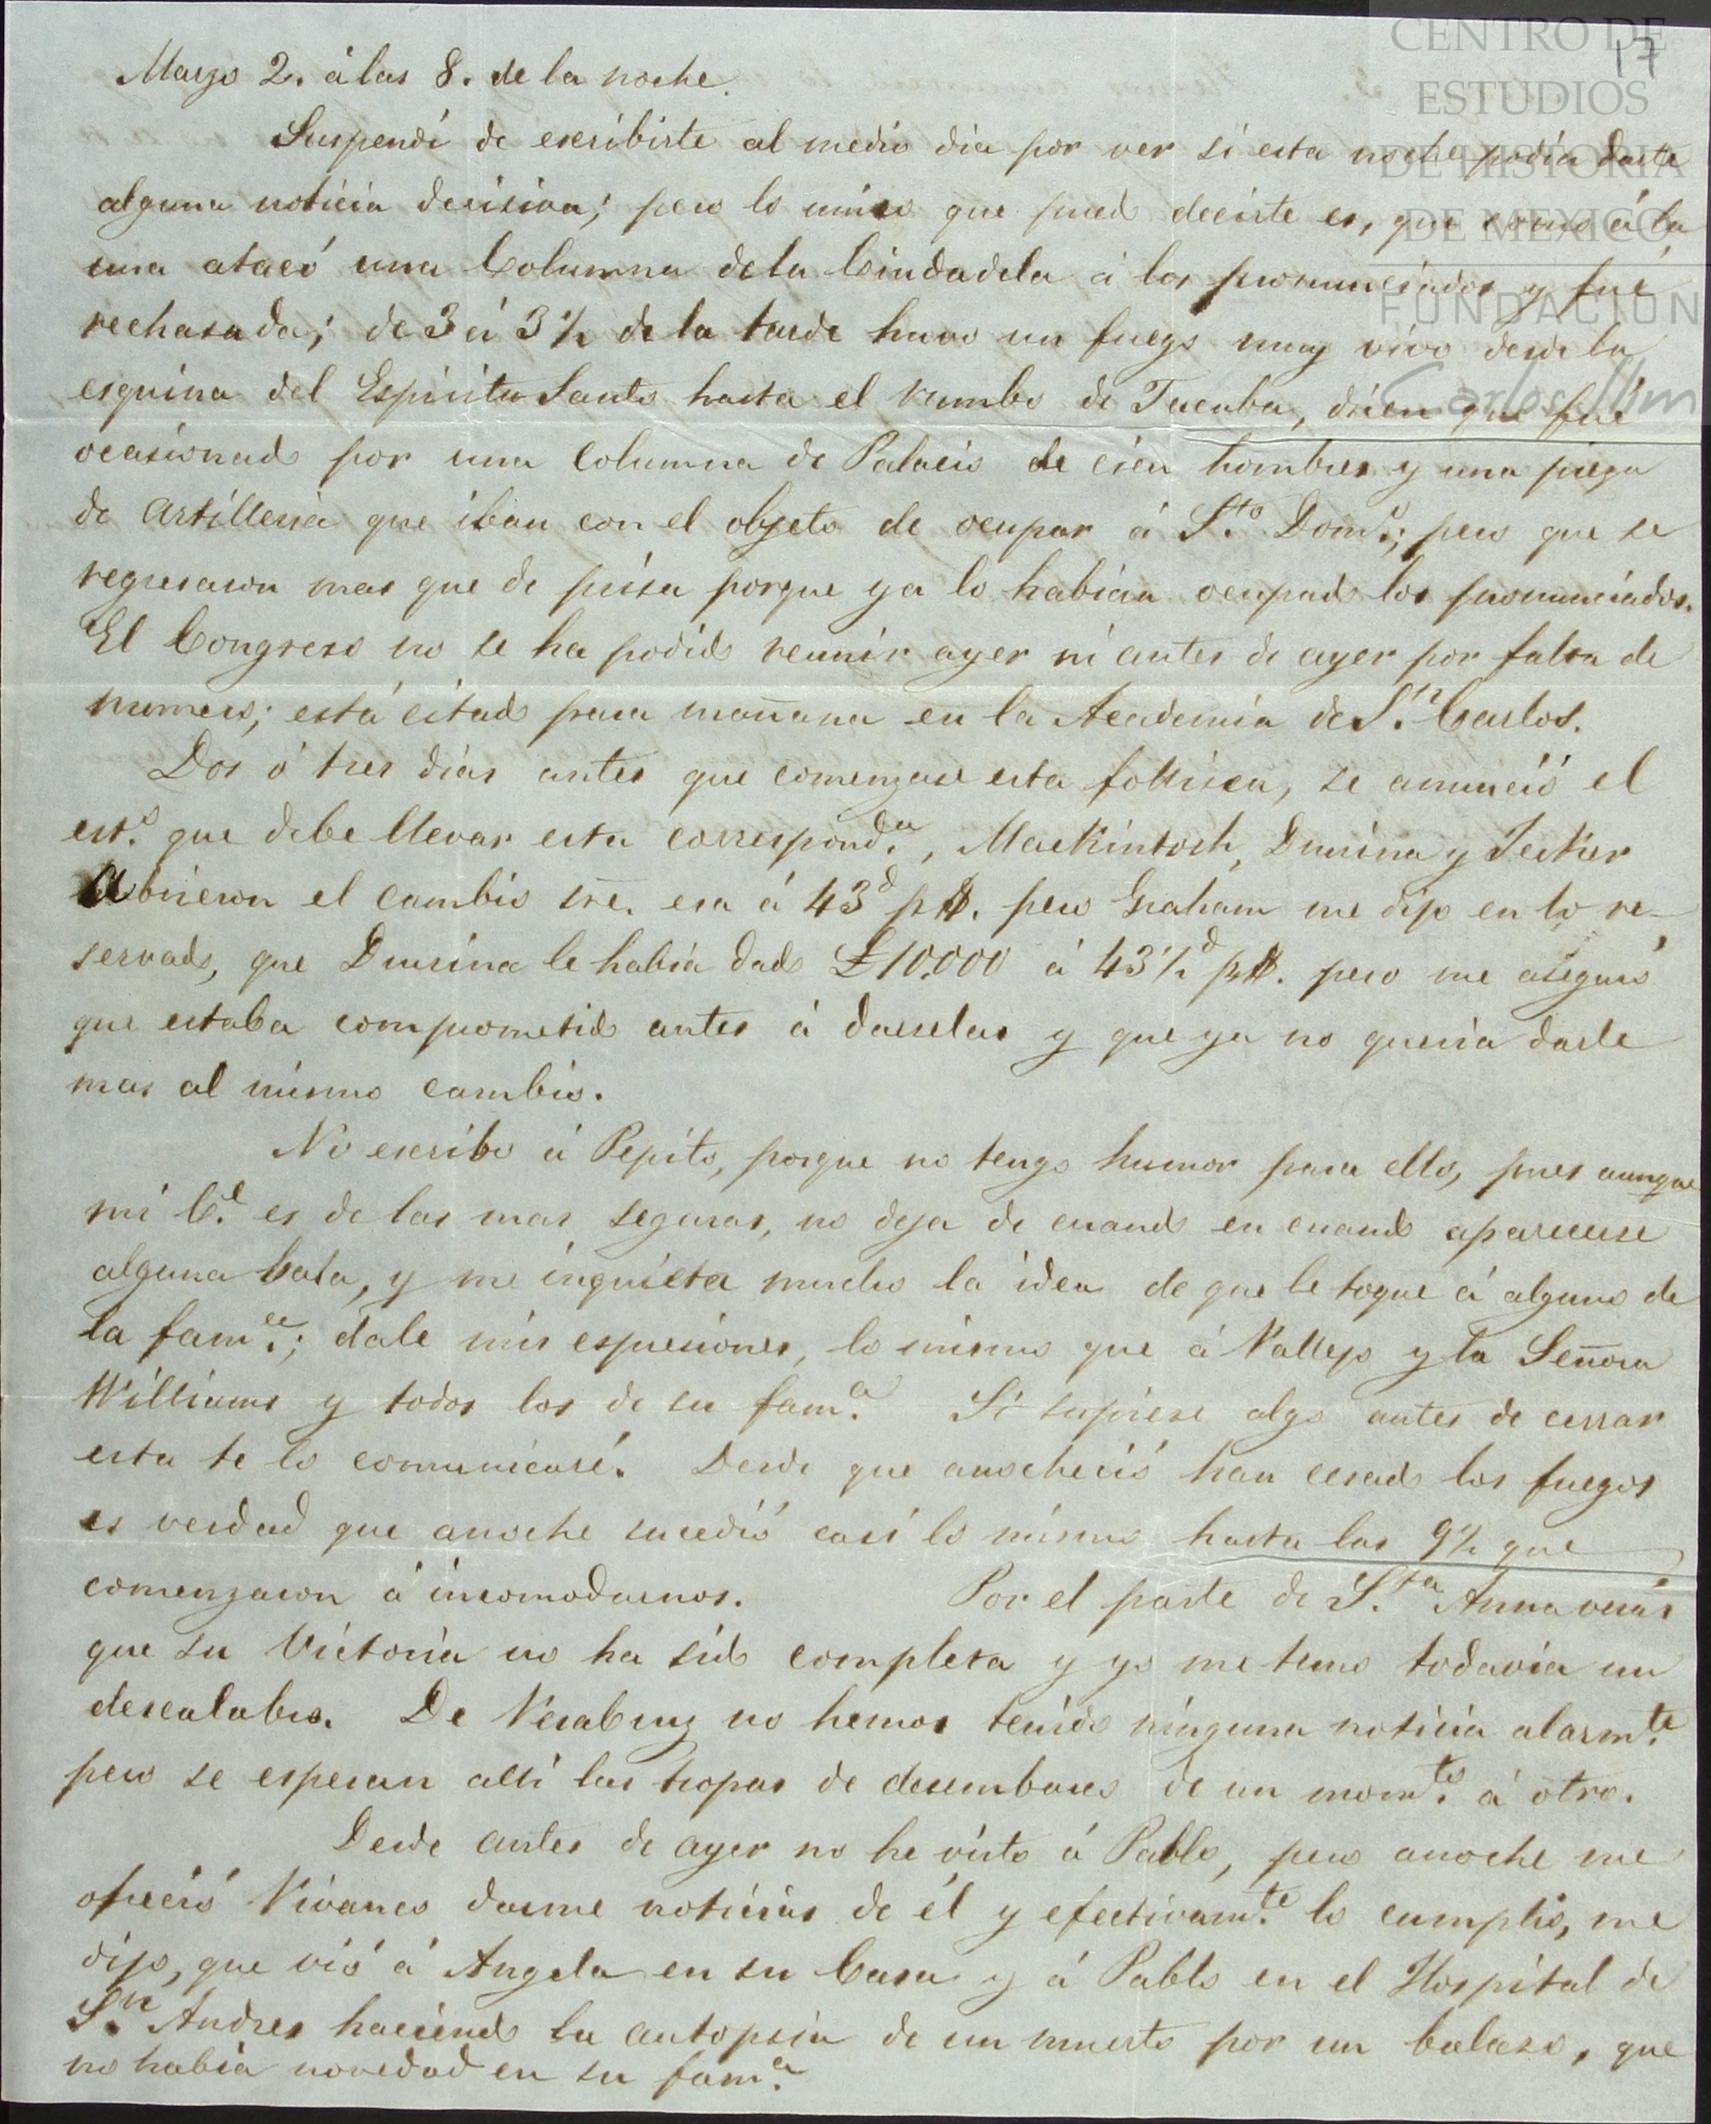 CENTRO DE
ESTUDIOS
DE HISTORIA
DE MEXICO
FUNDACION
Carlos Slim
17
Marzo 2. á las 8. de la noche.
Suspendí de escribirte al medio dia por ver si esta noche podia darte
alguna noticia decisiva; pero lo unico que puedo decirte es, que como á la
una atacó una Columna dela Ciudadela á los pronunciados y fué
rechasada; de 3 á 3½ de la tarde huvo un fuego muy vivo desde la
esquina del Espiritu Santo hasta el rumbo de Tacuba, dicen que fué
ocasionado por una columna de Palacio de cien hombres y una pieza
de Artilleria que iban con el objeto de ocupar á Sto. Domo.; pero que se
regresaron mas que de prisa porque ya lo habian ocupado los pronunciados.
El Congreso no se ha podido reunir ayer ni antes de ayer por falta de
numero; está citado para mañana en la Academia de Sn. Carlos.
Dos ó tres dias antes que comenzase esta follisca, se anunció el
esto. que debe llevar esta corresponda., Mackintosh, Drusina y Jecker
Abrieron el cambio sre. esa á 43d p$. pero Graham me dijo en lo re-
servado, que Drusina le habia dado £10.000 á 43½d p$. pero me aseguró
que estaba comprometido antes á darselas y que ya no queria darle
mas al mismo cambio.
No escribo á Pepito, porque no tengo humor para ello, pues aunque
mi Ce. es de las mas seguras, no deja de cuando en cuando aparecerse
alguna bala, y me inquieta mucho la idea de que le toque á alguno de
la fama.; dale mis espresiones, lo mismo que á Vallejo y la Señora
Williams y todos los de su fama. Si supiese algo antes de cerrar
esta te lo comunicaré. Desde que anocheció han cesado los fuegos
es verdad que anoche sucedió casi lo mismo hasta las 9½ que
comenzaron á incomodarnos. Por el parte de Sta. Anna verás
que su Victoria no ha sido completa y yo me temo todavia un
descalabro. De VeraCruz no hemos tenido ninguna noticia alarmte.
pero se esperan alli las tropas de desembarco de un momto. á otro.
Desde antes de ayer no he visto á Pablo, pero anoche me
ofreció Vivanco darme noticias de él y efectivamte. lo cumplió, me
dijo, que vió á Angela en su Casa y á Pablo en el Hospital de
Sn. Andres haciendo la autopsia de un muerto por un balazo, que
no habia novedad en su fama.